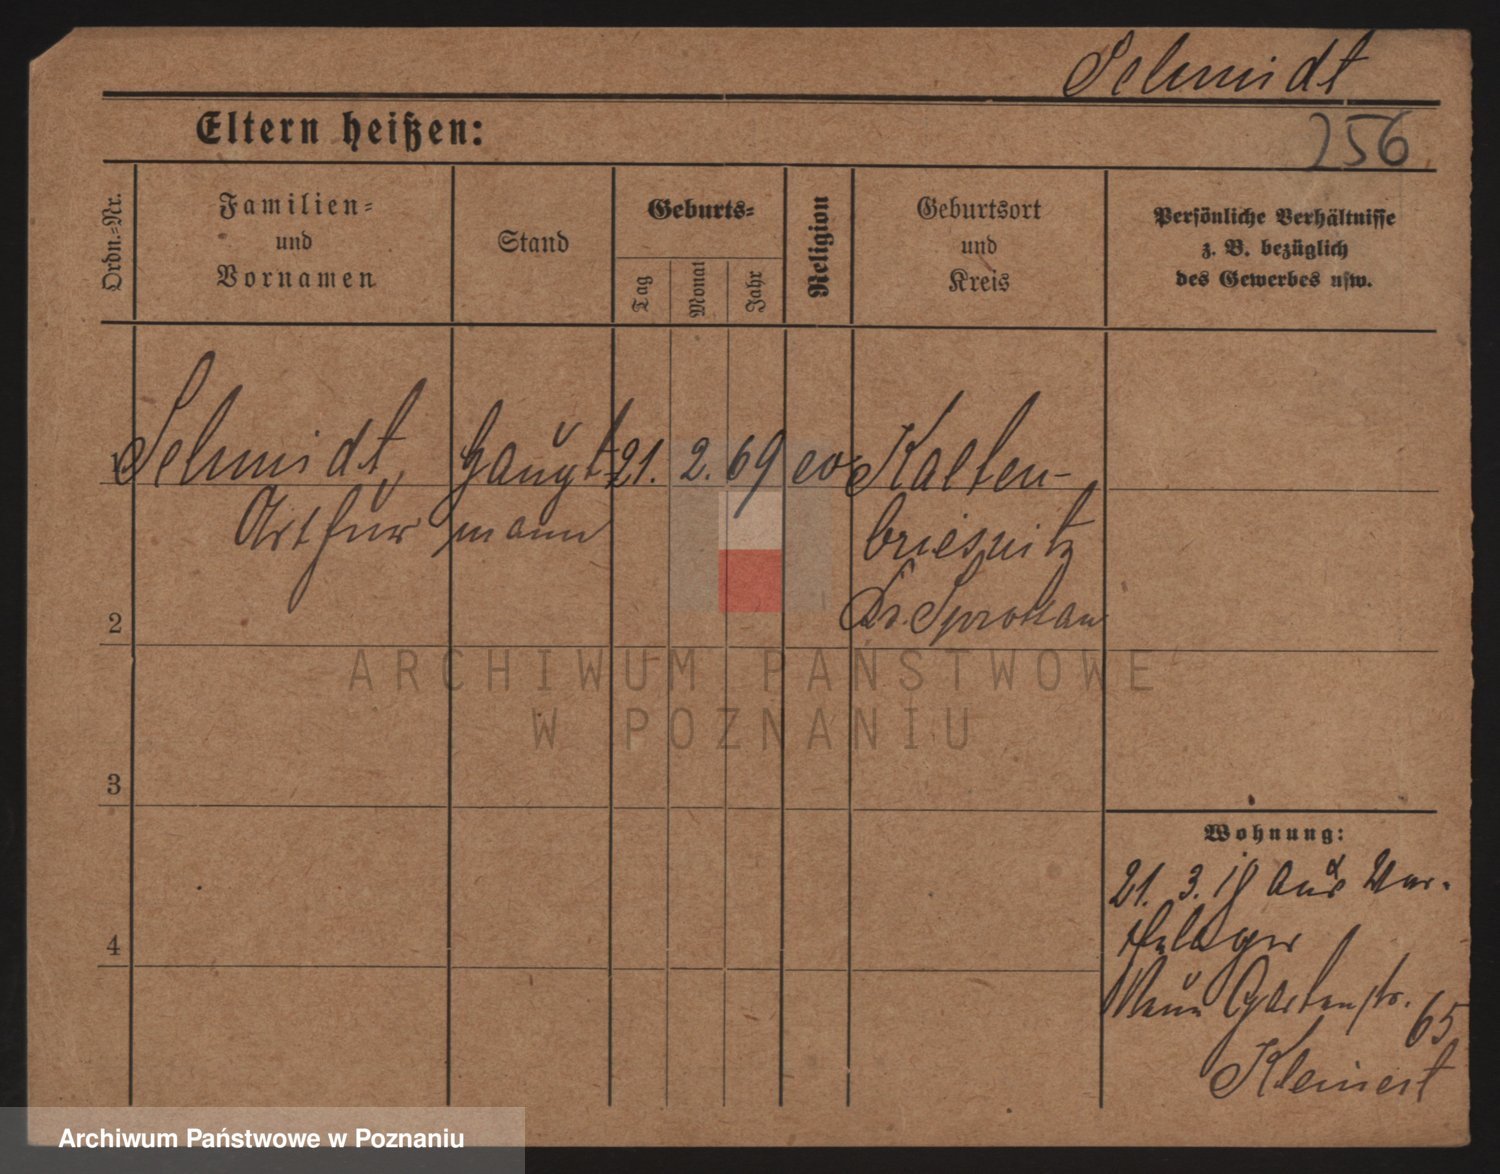 Schmidt
Eltern heißen:
256
Ordn.=Nr.
Familien=
und
Vornamen
Stand
Geburts=
Tag
Monat
Jahr
Religion
Geburtsort
und
Kreis
Persönliche Verhältnisse
z. B. bezüglich
des Gewerbes usw.
1
Schmidt, Haupt= 21. 2. 69 ev. Kalten-
Arthur mann briesnitz
Kr. Sprottau
2
3
4
Wohnung:
21. 3. 19 aus War-
thelager
Neue Gartenstr. 65
Kleinert
ARCHIWUM PAŃSTWOWE
W POZNANIU
Archiwum Państwowe w Poznaniu